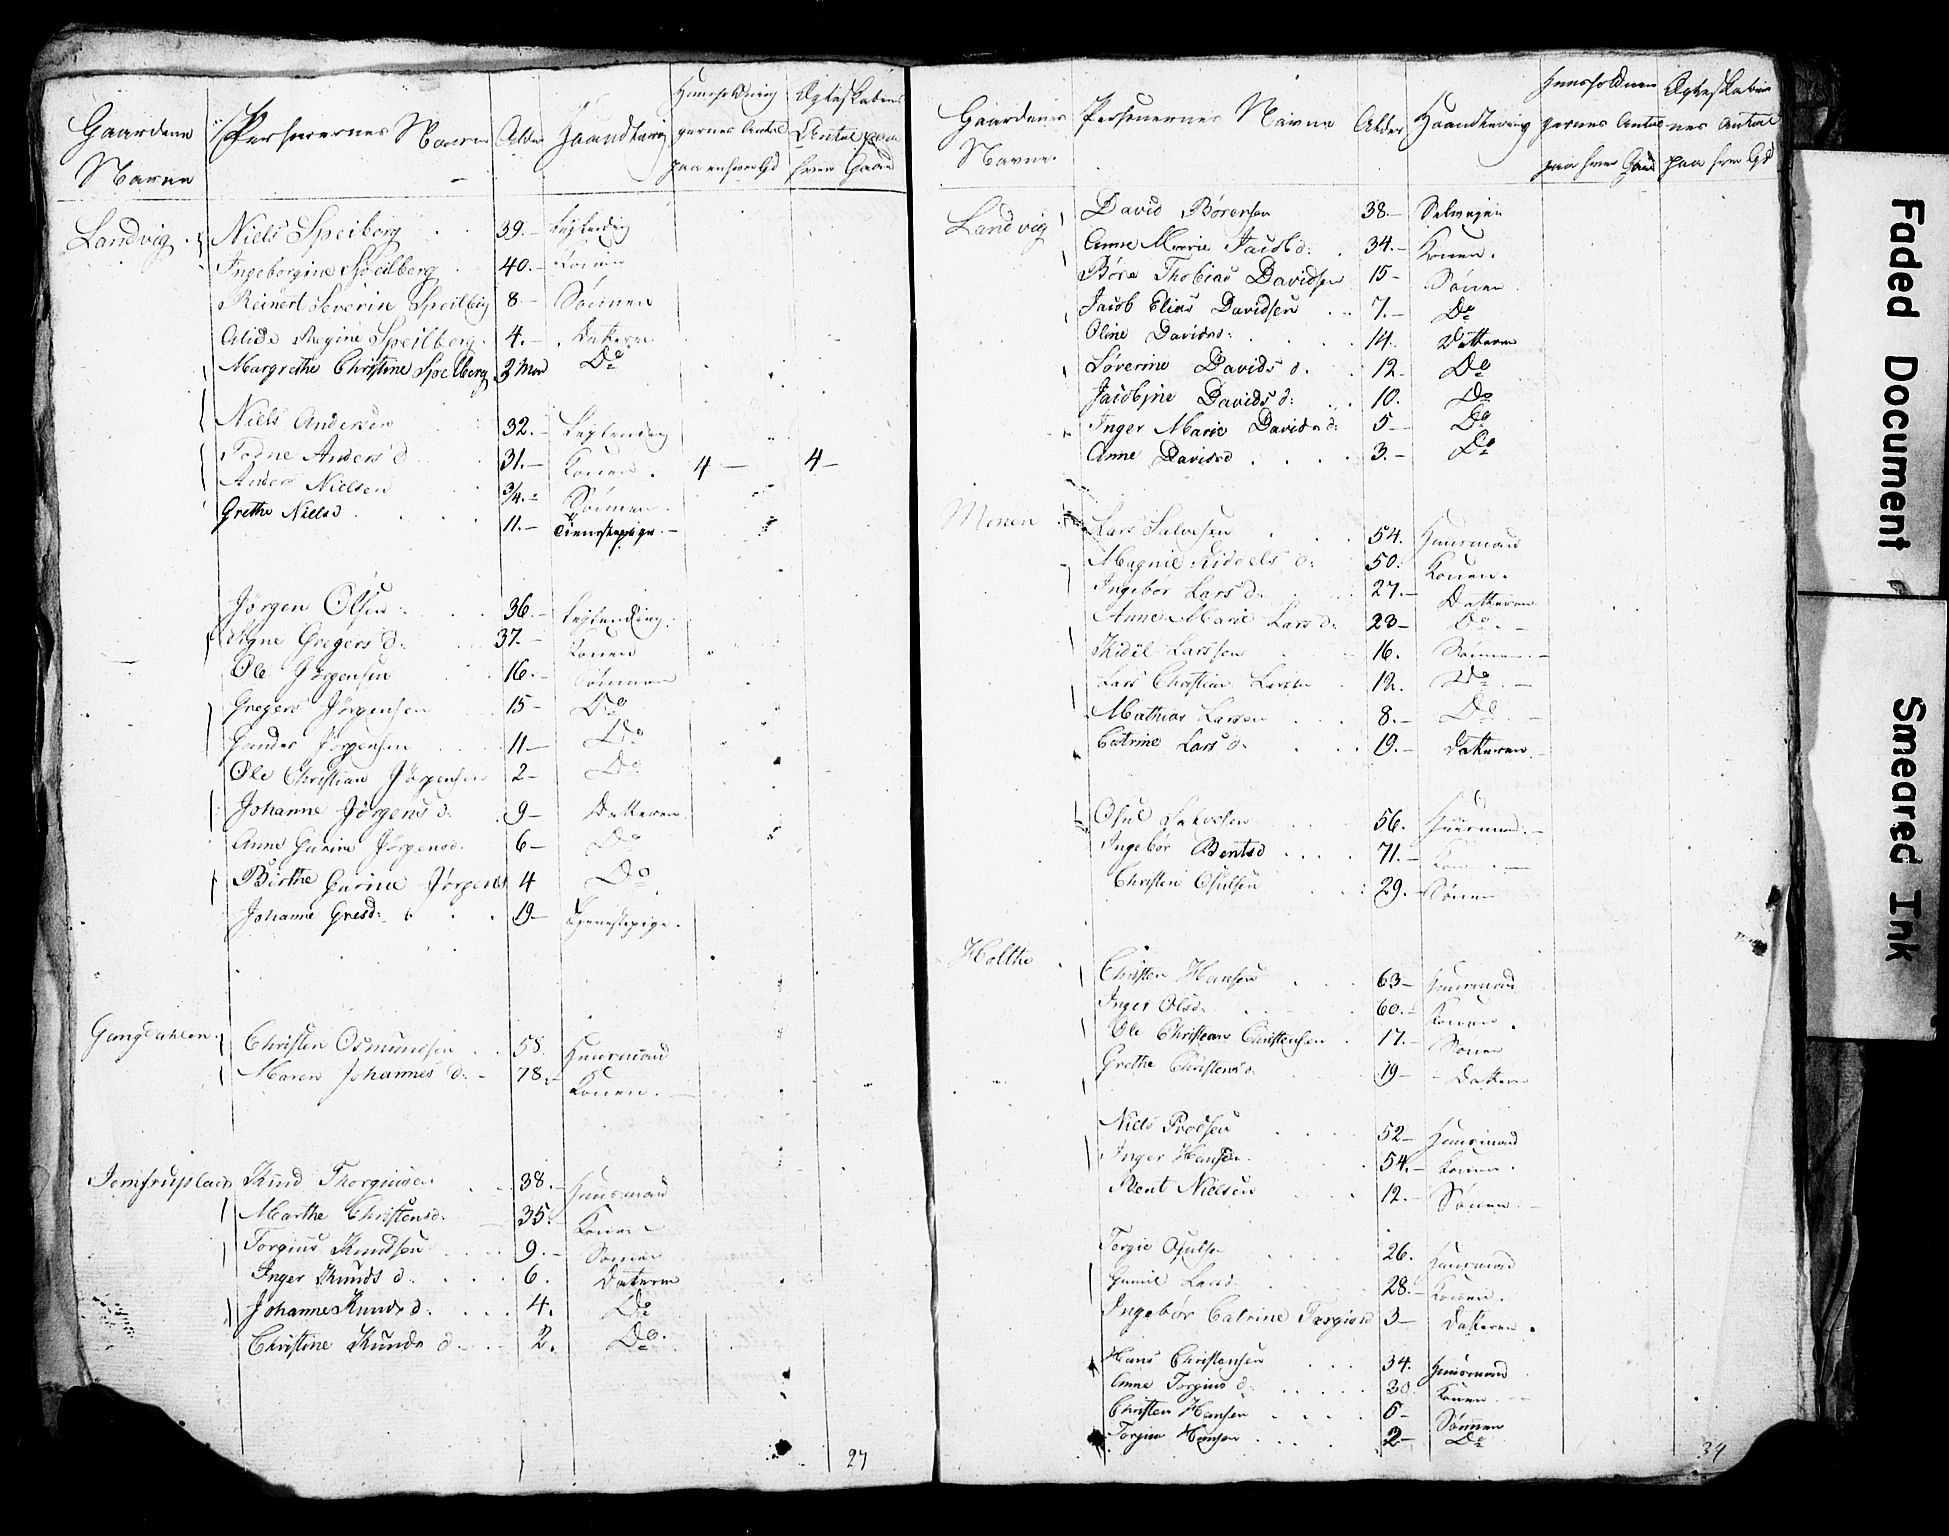 Gaardene Personernes Navne Alder Haandtering Huusholdnin Ægteskabens
Navne gernes Antal Antal paa
paa enhver Gd hver Gaard
Landvig Niels Speilberg 39.- Leylending
Ingeborgine Speilberg 40.- Konen
Reinert Severin Speilberg 8.- Sønnen
Alide Regine Speilberg. 4.- Datteren
Margrethe Christine Speilberg 3 Mnd Do
Niels Andersen 32.- Leylending
Todne Andersd 31.- Konen. 4- 4-
Anders Nielsen 3/4.- Sønnen.
Grethe Nielsd 11.- Tienestepige.-
Jørgen Olsen 36.- Leylending.
Signe Gregersd. 37.- Konen
Ole Jørgensen 16.- Sønnen
Gregers Jørgensen 15- Do
Gunder Jørgensen 11- Do
Ole Christian Jørgensen 2- Do
Johanne Jørgensd. 9- Datteren.
Anne Gurine Jørgensd. 6- Do
Birthe Gurine Jørgensd 4 Do
Johanne Gresd: 19- Tjenestepige.
Gangdahlen. Christen Osmundsen 58. Huusmand
Maren Johannesd:- 78.- Konen.
Jomfrupladsen Knud Thorgiusen 38.- Huusmand
Marthe Christensd. 35.- Konen
Torgius Knudsen 9.- Sønnen
Inger Knudsd. 6. Datteren
Johanne Knudsd. 4. Do
Christine Knudsd 2. Do.
27
Gaardenes Personernes Navne Alder Haandtering Huusholdnin Ægteskabe
Navne. gernes Antal nes Antal
paa hver Gaard paa hver Gd
Landvig David Børensen 38.- Selveyer
Anne Marie Jacobd: 34.- Konen.
Børe Thobias Davidsen 15- Sønnen
Jacob Elias Davidsen 7.- Do
Oline Davidsd: 14. Datteren
Søverine Davidsd. 12- Do
Jacobine Davidsd: 10. Do
Inger Marie Davidsd: 5- Do
Anne Davidsd 3.- Do
Monen Lars Salvesen 54. Huusmand
Magnil Kiddelsd: 50. Konen.
Ingebør Larsd. 27.- Datteren
Anne Marie Larsd: 23- Do.-
Kidil Larssen 16. Sønnen-
Lars Christian Larsen 12. Do.-
Mathias Larsen 8.- Do-
Catrine Larsd. 19.- Datteren.
Osul Salvesen 56. Huusmand.-
Ingebør Bentsd 71.- Konen.-
Christen Osulsen 29.- Sønnen
Holthe Christen Hansen 63- Huusmand
Inger Olsd. 60.- Konen.
Ole Christian Christensen 17.- Sønnen
Grethe Christensd. 19- Datteren
Niels Broesen 52- Huusmand
Inger Hansd. 54.- Konen.
Bent Nielsen 12.- Sønnen.-
Torgie Osulsen 26. Huusmand
Gunil Larsd. 28.- Konen.
Ingebør Catrine Torgiusd 3- Datteren.
Hans Christensen 34. Huusmand
Anne Torgiusd. 30 Konen.
Christen Hansen 5- Sønnen
Torgius Hansen 2- Do
34
Faded Document
Smeared Ink